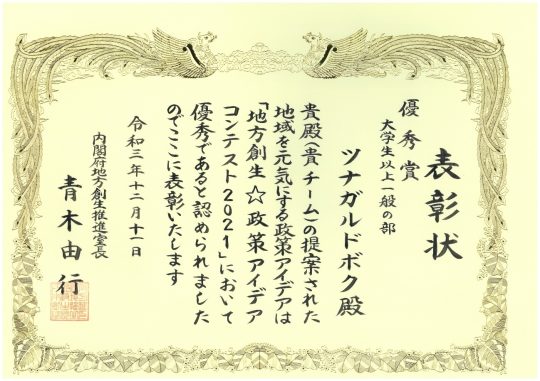 表彰状
優秀賞
大学生以上一般の部
ツナガルドボク殿
貴殿(貴チーム)の提案された
地域を元気にする政策アイデアは
「地方創生☆政策アイデア
コンテスト2021」において
優秀であると認められました
のでここに表彰いたします
令和三年十二月十一日
内閣府地方創生推進室長
青木由行